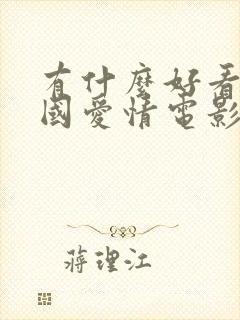 有什麼好看
國愛情電影
蔣理江